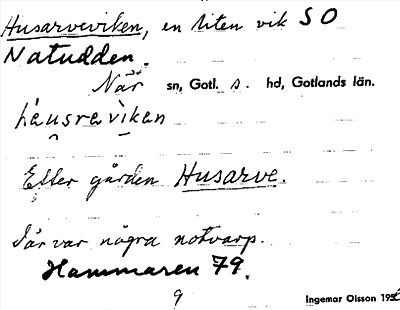 Husarveviken, en liten vik SO
Natudden.
När sn, Gotl. s. hd, Gotlands län.
Efter gården Husarve.
Där var några notvarp.
Hammaren 79.
9
Ingemar Olsson